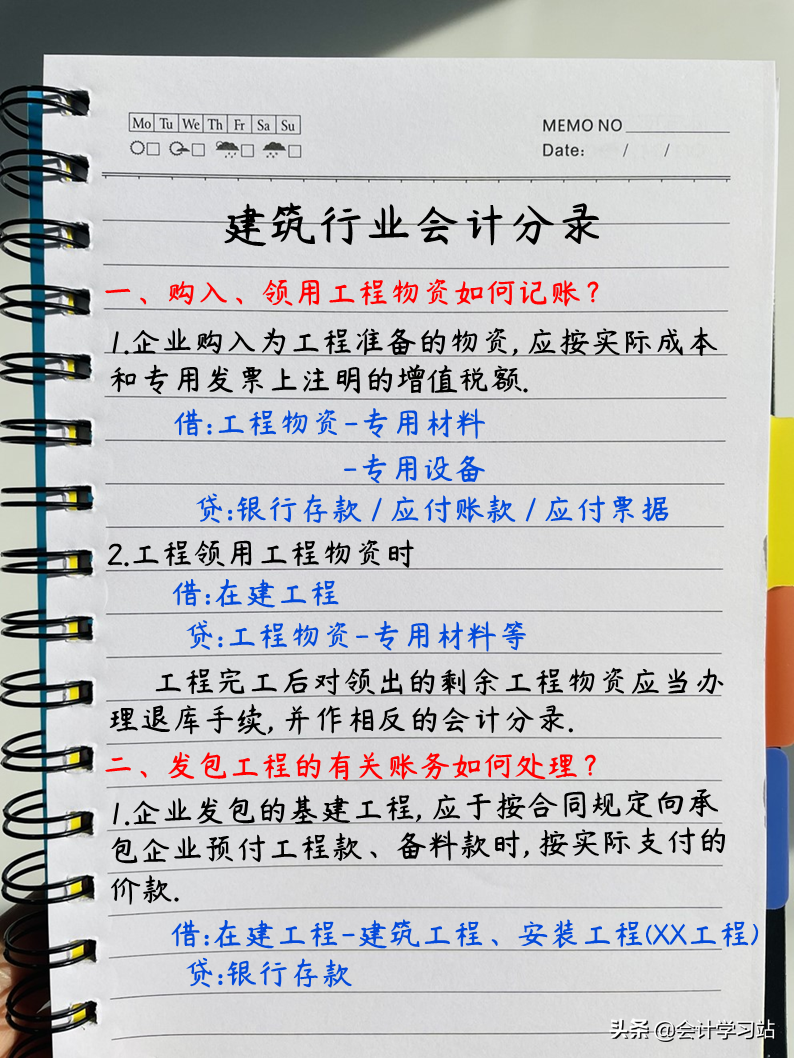 Mo Tu We Th Fr Sa Su
MEMO NO
Date: / /
建筑行业会计分录
一、购入、领用工程物资如何记账？
1.企业购入为工程准备的物资,应按实际成本
和专用发票上注明的增值税额.
借:工程物资-专用材料
-专用设备
贷:银行存款/应付账款/应付票据
2.工程领用工程物资时
借:在建工程
贷:工程物资-专用材料等
工程完工后对领出的剩余工程物资应当办
理退库手续,并作相反的会计分录.
二、发包工程的有关账务如何处理？
1.企业发包的基建工程,应于按合同规定向承
包企业预付工程款、备料款时,按实际支付的
价款.
借:在建工程-建筑工程、安装工程(XX工程)
贷:银行存款
头条 @会计学习站